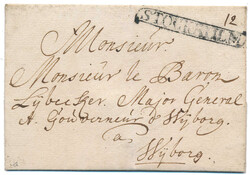 STOCKHOLM
12
Monsieur
Monsieur le Baron
Major General
& Gouverneur d'Wyborg.
a
Wyborg.